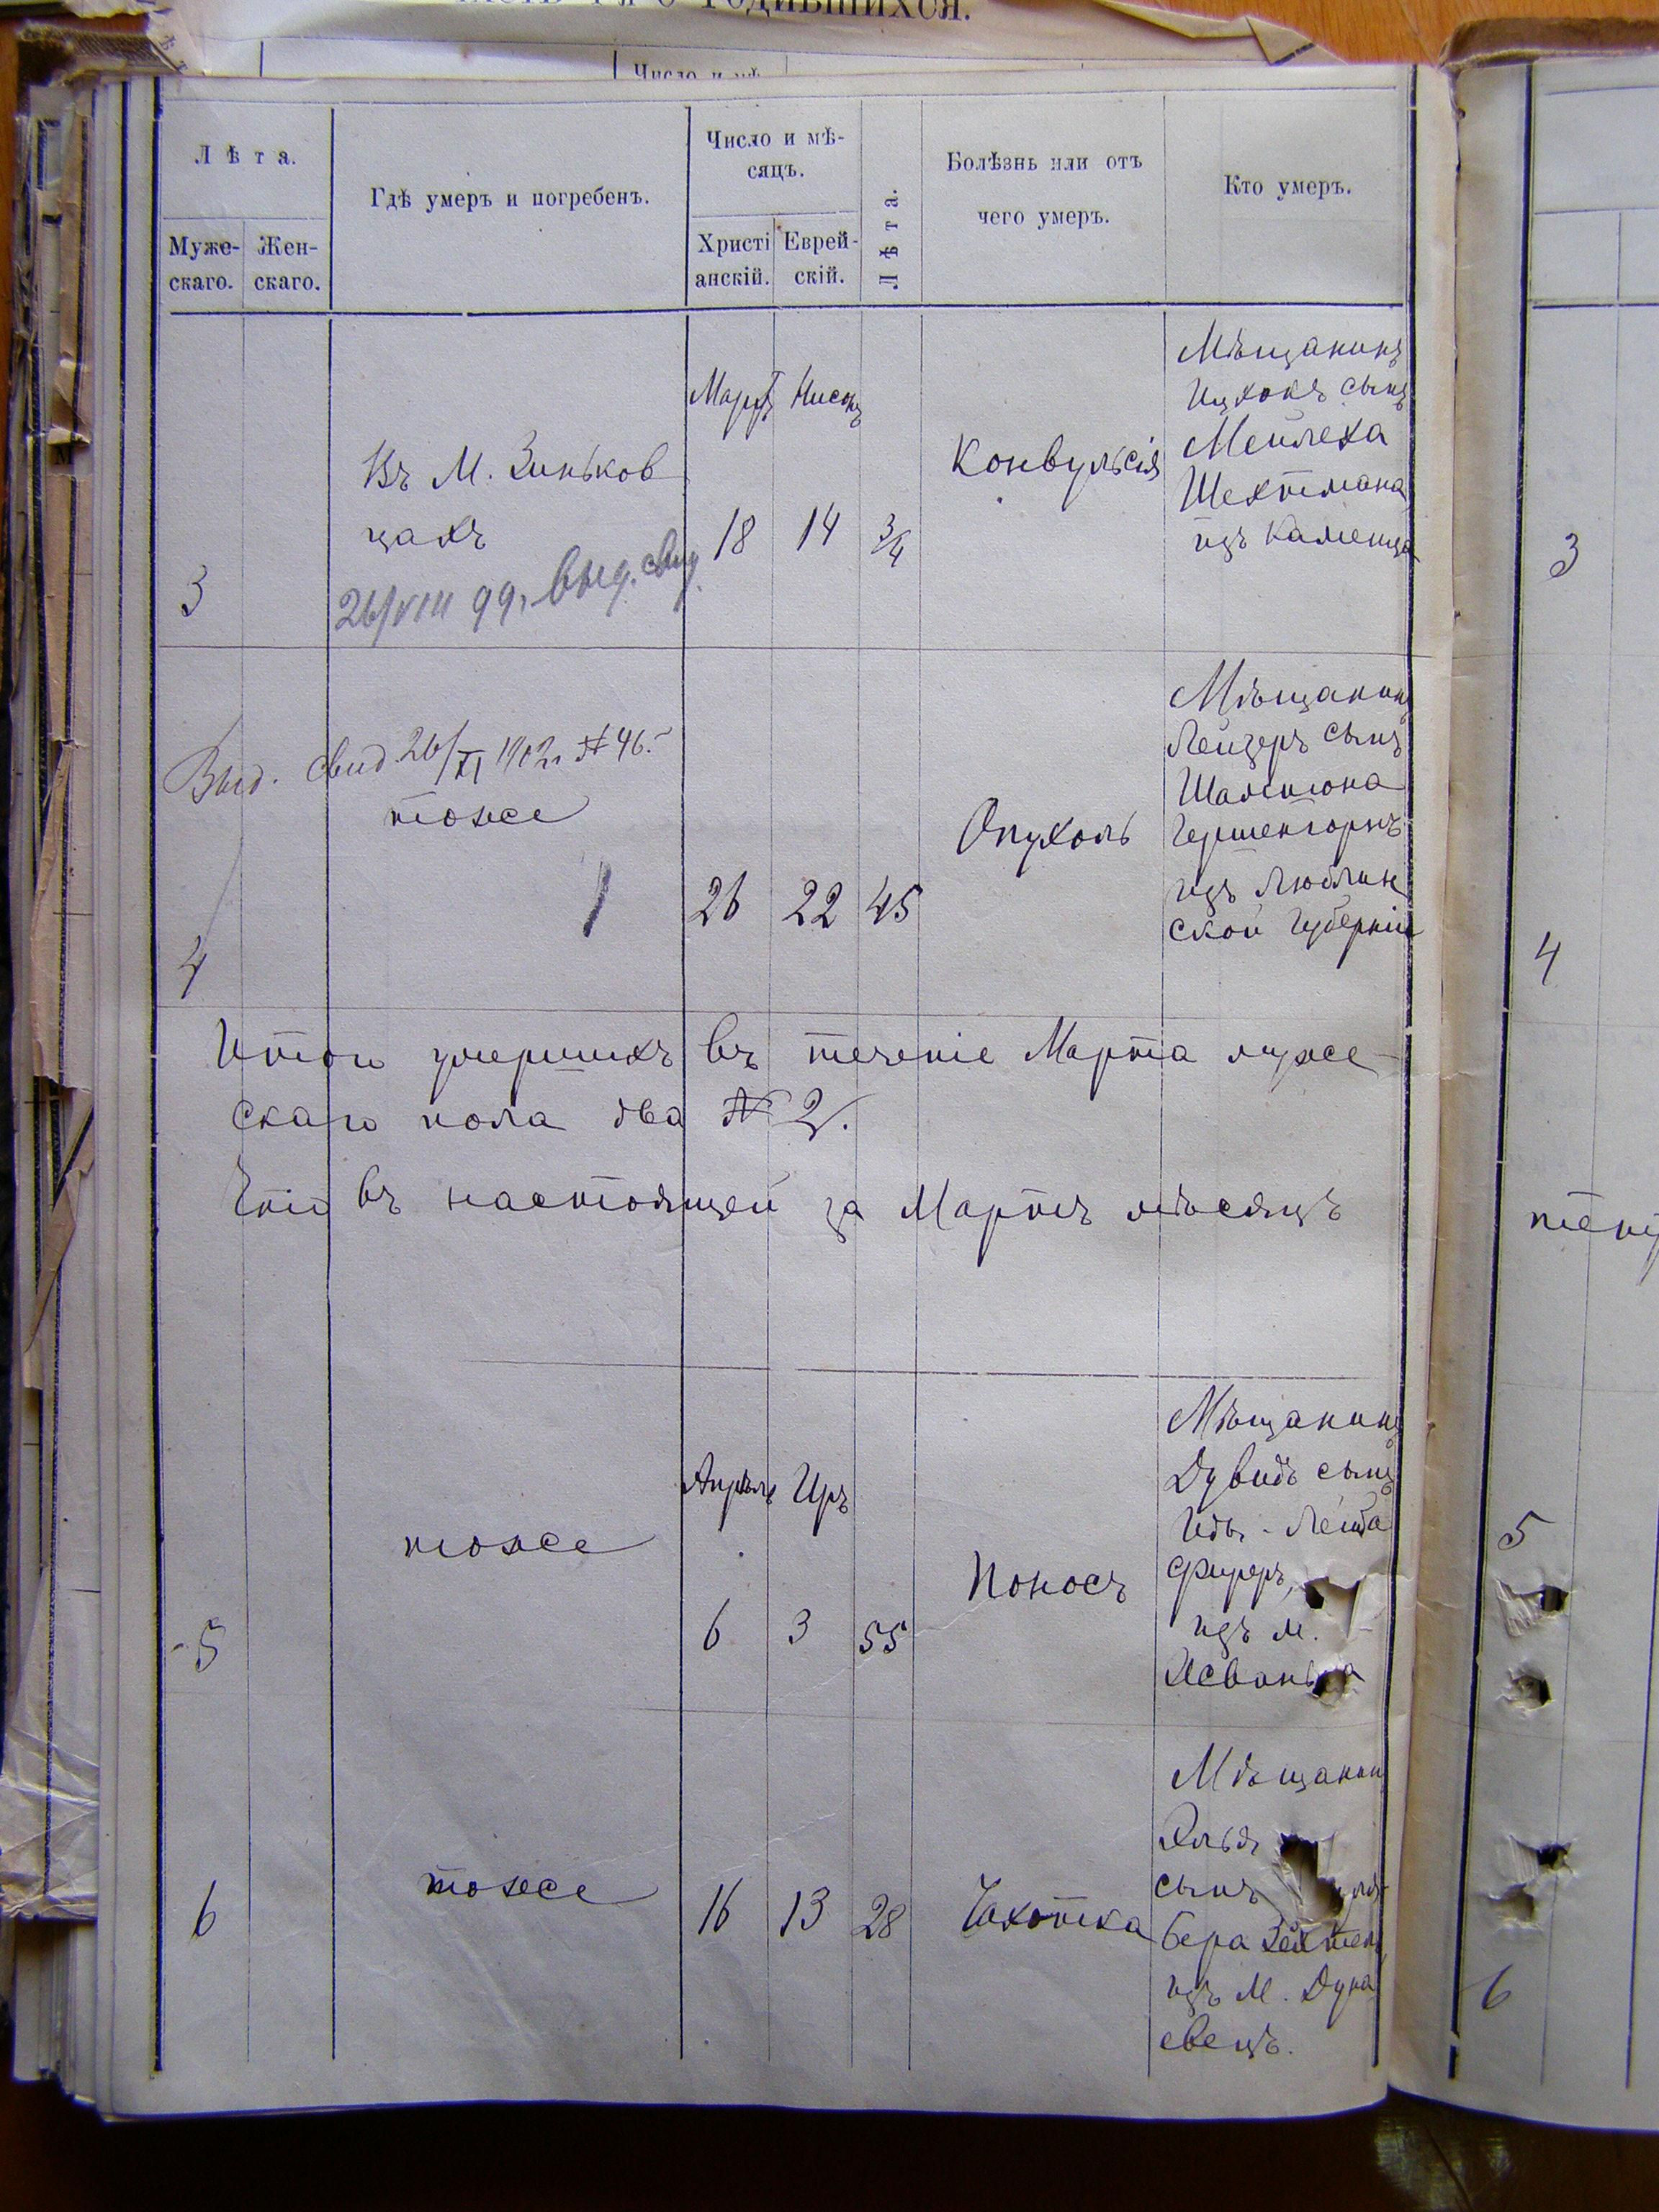 Число и мѣ-
Лѣта.
Гдѣ умеръ и погребенъ.
Число и мѣ-
сяцъ.
Лѣта.
Болѣзнь или отъ
чего умеръ.
Кто умеръ.
Муже-
скаго.
Жен-
скаго.
Христі
анскій.
Еврей-
скій.
3
Въ М. Зиньков
цахъ
26/VIII 99, выд. свид.
Мартъ
18
Нисонъ
14
3/4
Конвульсія
Мѣщанинъ
Ицхокъ сынъ
Мейлеха
Шехтмана
изъ Каменца
3
4
Выд. свид. 26/XI 1902 г. № 46.
тоже
26
22
45
Опухоль
Мѣщанинъ
Лейзеръ сынъ
Шамшона
Гершенгорнъ
изъ Люблин
ской Губерніи
4
Итого умершихъ въ теченіе Марта муже-
скаго пола два № 2.
въ настоящей за Мартъ мѣсяцъ
5
тоже
Апрѣль
6
Иръ
3
55
Поносъ
Мѣщанинъ
Дувидъ сынъ
Лейба
изъ м.
5
6
тоже
16
13
28
Чахотка
Мѣщанин
сынъ
бера
изъ М. Дуна
евецъ.
6